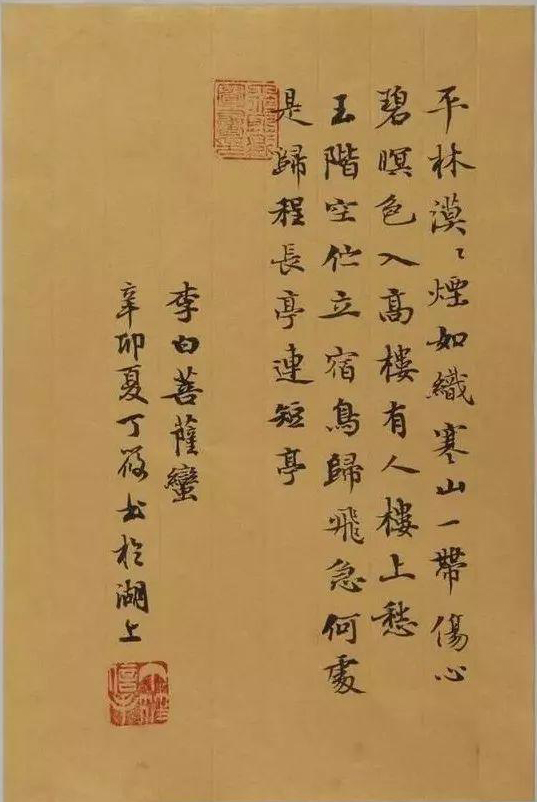 平林漠〻煙如織寒山一帶傷心
碧暝色入高樓有人樓上愁
玉階空伫立宿鳥歸飛急何處
是歸程長亭連短亭
李白菩薩蠻
辛卯夏丁筱书於湖上